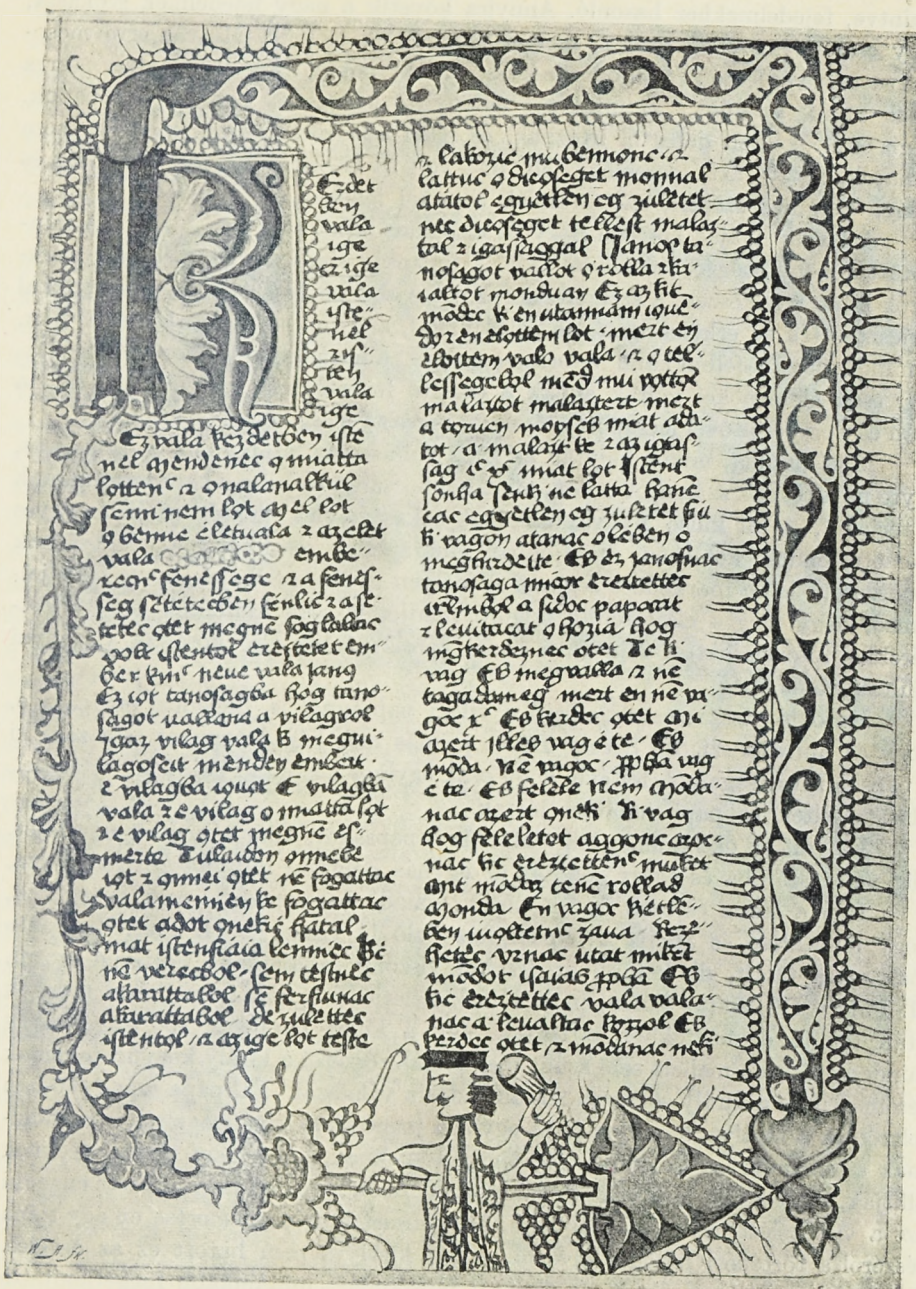 K
Ezdet
ben
vala
ige
ez ige
vala
iste-
nel
ꝛ is-
ten
vala
ige
Ez vala kezdetben iste
nel Mendenec ꝯ miatta
lottenc ꝛ ꝯ nalanalkül
semi nem lot Mel lot
ꝯ benne élet uala ꝛ az elet
vala embe-
fenessege ꝛ a fenes-
seg setetecben fénlic ꝛ a se-
tetec ꝯtet megnē foglaltac
istentol ereztetet em-
ber neue vala janꝯ
Ez iot tanosagba hog tano-
sagot uallana a vilagrol
Igaz vilag vala ki megui-
lagoseit menden embert
e vilagba iouot E vilagba
vala ꝛ e vilag o miatta lot
ꝛ e vilag ꝯtet megnē es-
merte Tulaidon ꝯnnebe
iot ꝛ ꝯnnei ꝯtet nē fogattac
Valamenien ke fogattac
ꝯtet adot ꝯnekic hatal-
mat istenfiaia lenniec
nē verecbol sem testnec
akarattabol sē ferfiunac
akarattabol de zulettec
istentol ꝛ az ige lot teste
ꝛ lakozic mu bennonc ꝛ
lattuc ꝯ dicꝯseget monnal
atatol egyetlen eg zuletet
nec dicoseget tellest malaz-
tal ꝛ igassaggal Janos ta-
nosagot vallot ꝯ rolla ꝛ ka-
ialtot monduan Ez az kit
modec Ki en utannam ioue-
do en elottem lot mert en
elottem valo vala ꝛ ꝯ tel-
lessegebol mēd mu vottoc
malaztot malaztert mert
a toruen moyses miat ada-
tot a malazt ke ꝛ az igas-
sag miat lot Istent
sonha senki ne latta hanē
czac egyetlen eg zuletet fiu
ki vagon atanac oleben o
meghirdeite Es ez janosnac
tanosaga micor ereztettec
ilrlmbol a sidoc papocat
ꝛ levitacat ꝯ hozia hog
mgkerdeznec otet Te ki
vag Es megvalla ꝛ nē
tagada meg mert en nē va-
goc Es kerdec ꝯtet Mi
azert Illes vag e te Es
mōda Nē vagoc vag
e te Es felele Nem Mōda-
nac azert ꝯneki Ki vag
hog feleletot aggonc azoc-
nac kic ereztettenc muket
Mit mōdaz tenē rollad
Monda En vagoc ketle-
ben iuoltetnc zaua keze-
hetec vrnac utat mikēt
mōdot isaias Es
kic ereztettec vala vala-
nac a leualtac kozzol Es
kerdec ꝯtet ꝛ mōdanac neki